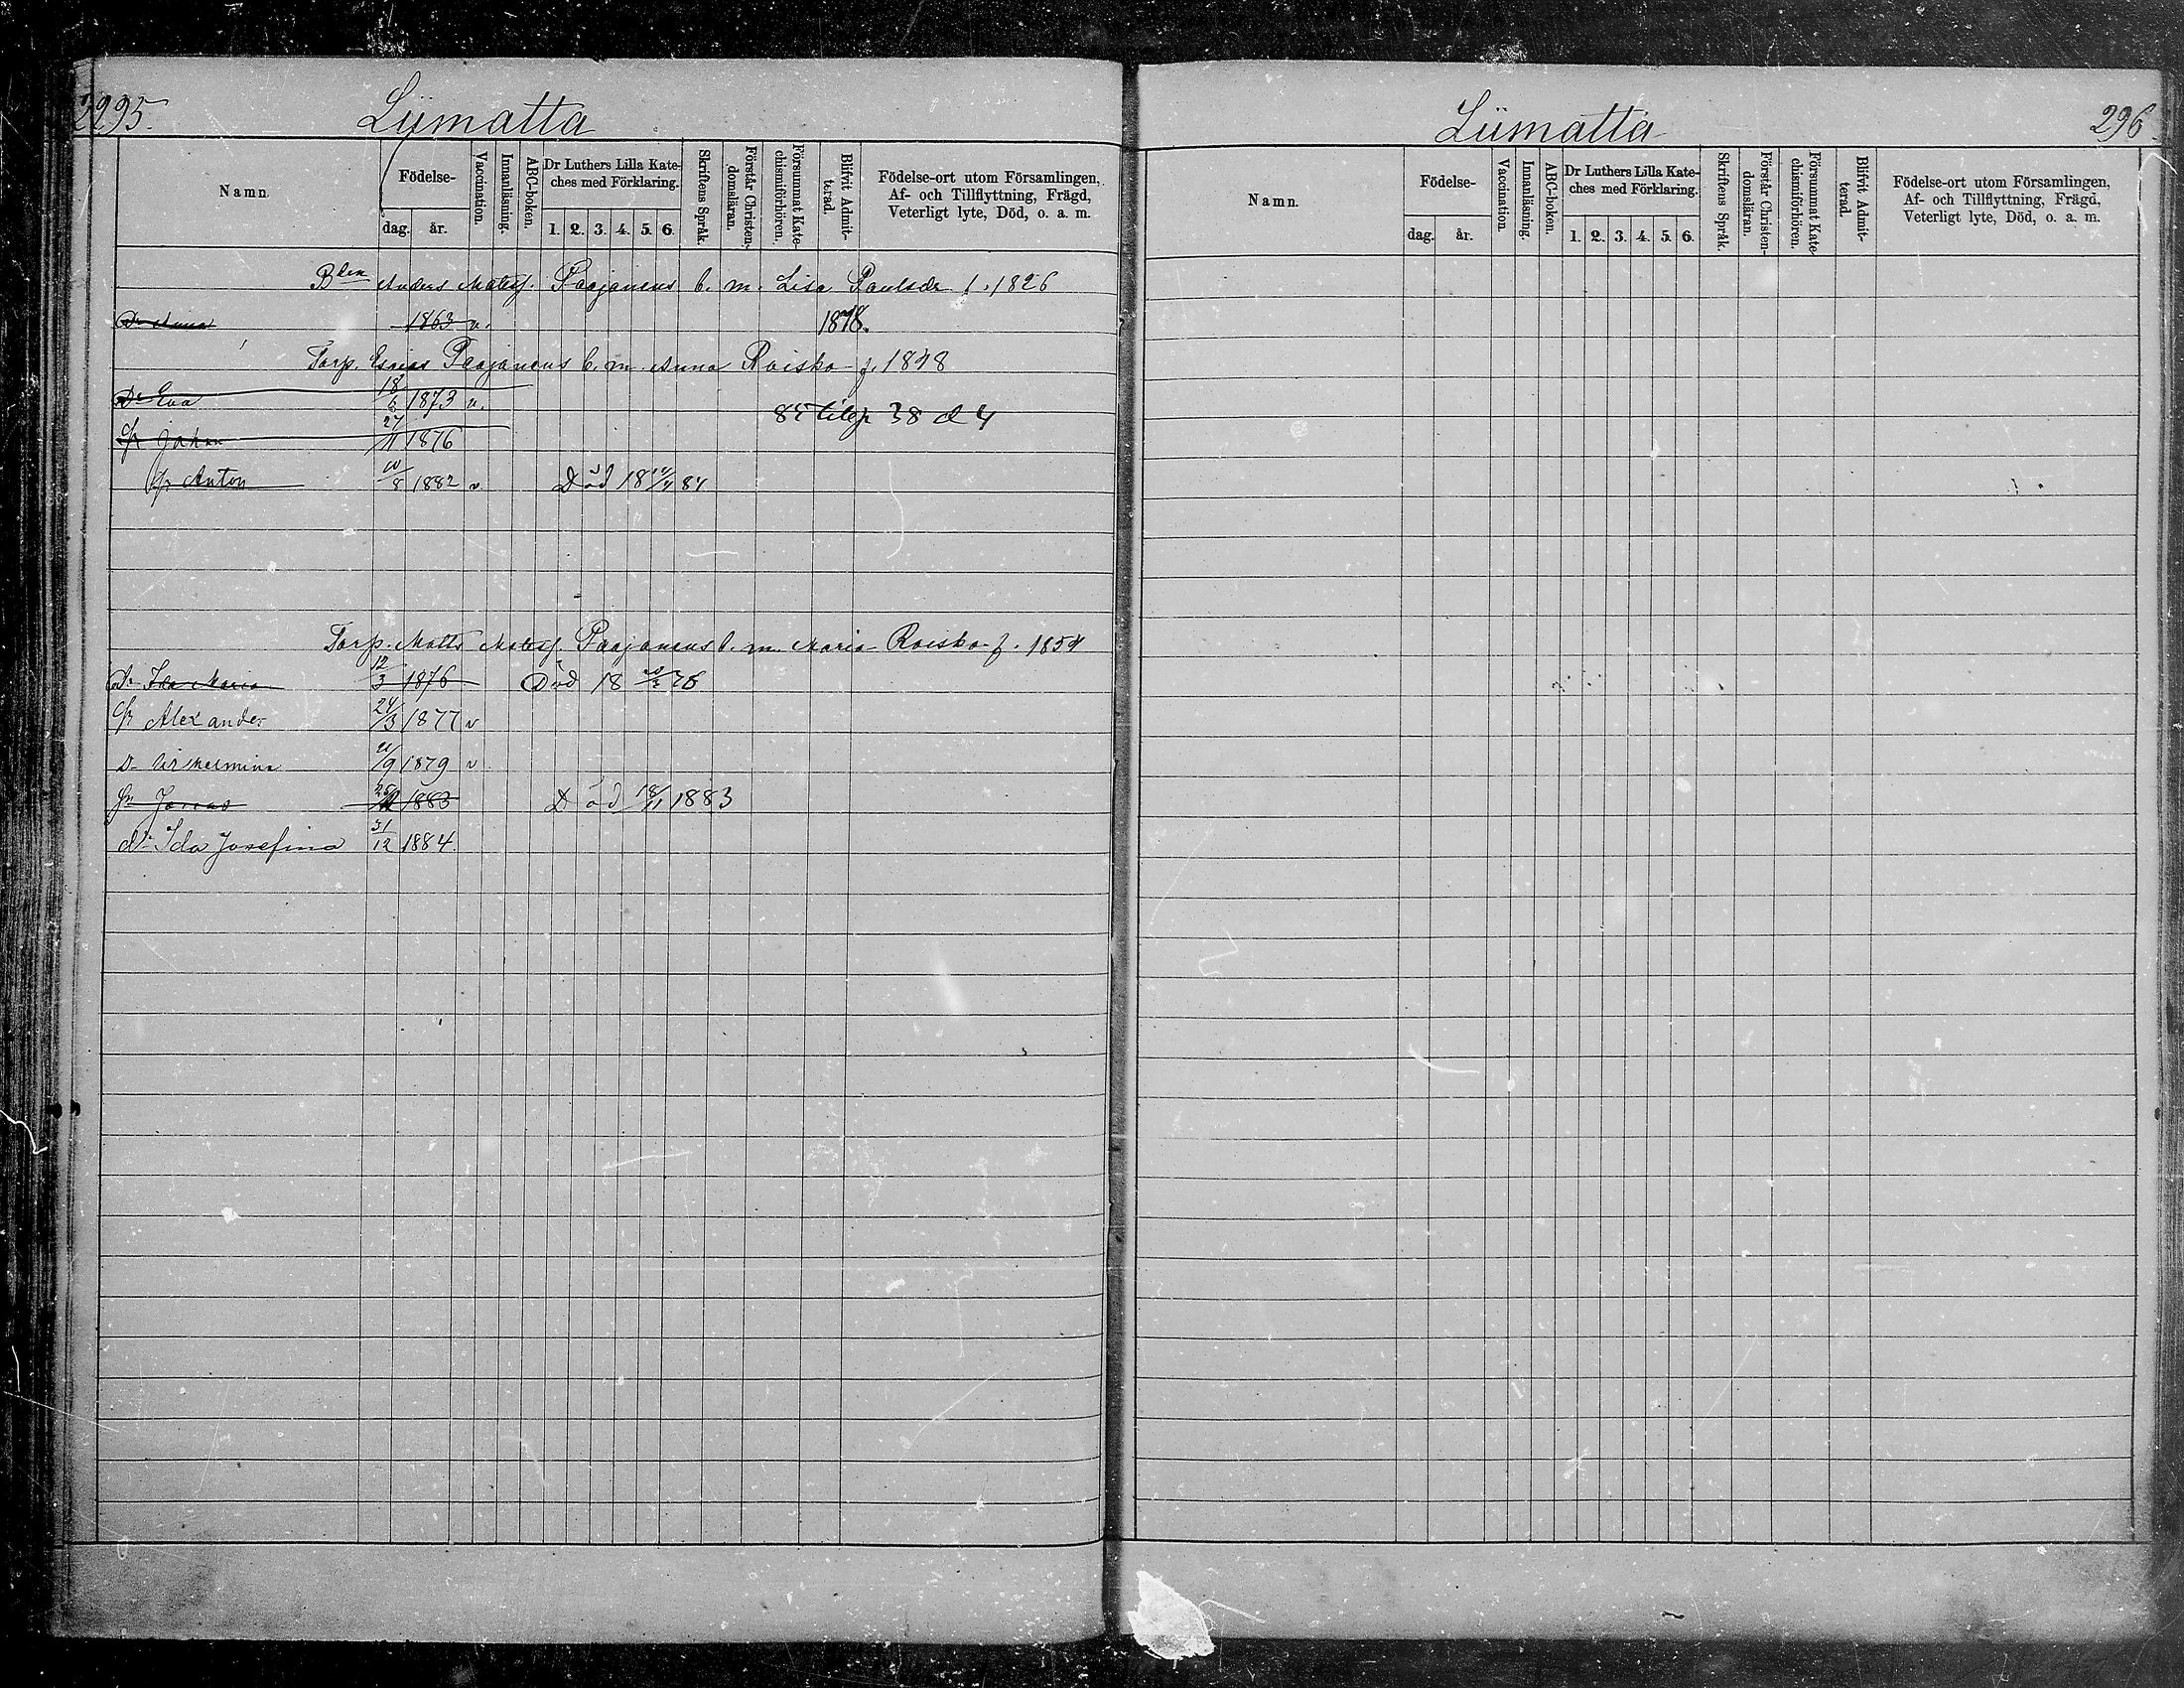 295.
Liimatta
Namn.
Födelse-
dag.
år.
Vaccination.
Innanläsning.
ABC-boken.
Dr Luthers Lilla Kate-
ches med Förklaring.
1. 2. 3. 4. 5. 6.
Skriftens Språk.
Förstår Christen-
domsläran.
Försummat Kate-
chismiförhören.
Blifvit Admit-
terad.
Födelse-ort utom Församlingen,
Af- och Tillflyttning, Frägd,
Veterligt lyte, Död, o. a. m.
Bden Anders Matss. Paajanens b. m. Lisa Paulsdr f. 1826
Dr Anna 1863 v. 1878.
Torp. Esaias Paajanens b. m. Anna Roisko f. 1848
Dr Eva 18/6 1873 v.
85 38 d 4
Sn Johan 27/11 1876
Sn Anton 10/8 1882 v Död
Torp. Matts Matss. Paajanens b. m. Maria Roisko f. 1854
Dr Ida Maria 12/3 1876 Död 18 76
Sn Alexander 24/3 1877 v
Dr Vilhelmina 21/9 1879 v
Sn Jonas 1883 Död 18/11 1883
Dr Ida Josefina 31/12 1884.
Liimatta
296.
Namn.
Födelse-
dag.
år.
Vaccination.
Innanläsning.
ABC-boken.
Dr Luthers Lilla Kate-
ches med Förklaring.
1. 2. 3. 4. 5. 6.
Skriftens Språk.
Förstår Christen-
domsläran.
Försummat Kate-
chismiförhören.
Blifvit Admit-
terad.
Födelse-ort utom Församlingen,
Af- och Tillflyttning, Frägd,
Veterligt lyte, Död, o. a. m.